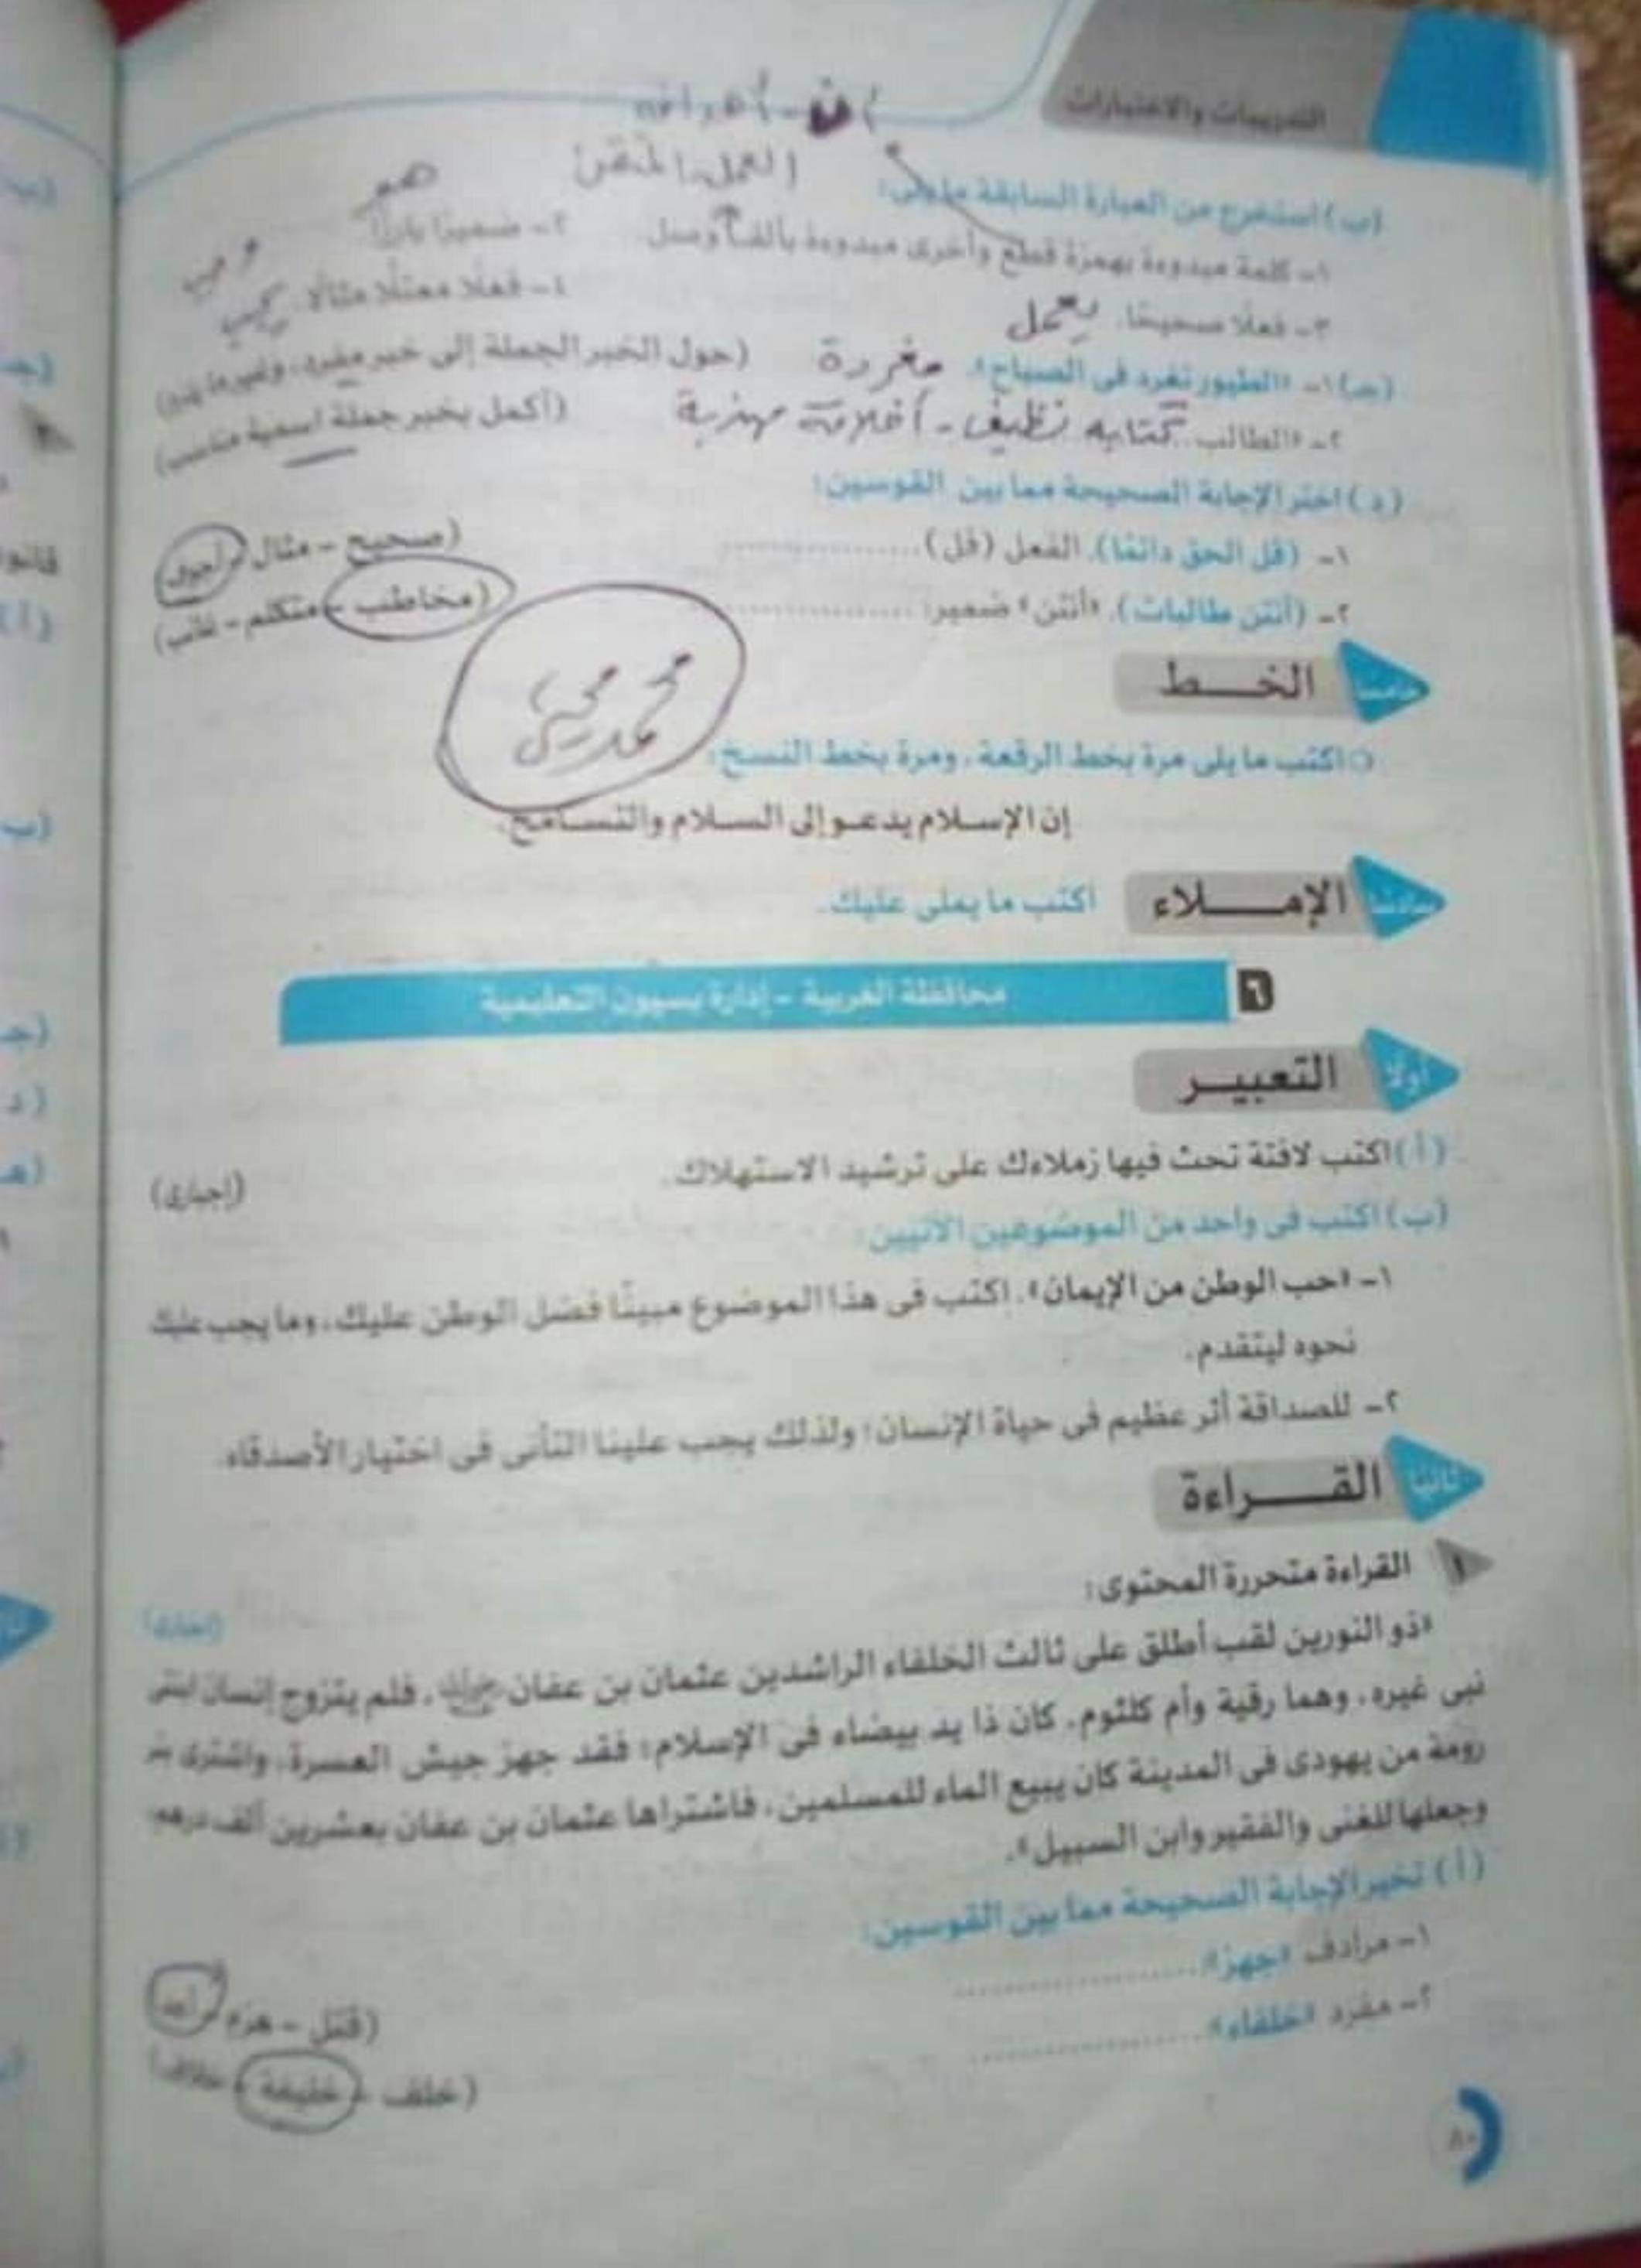 التدريبات والاختبارات
أن - أهدافه
العمل - المتقن
هم
(ب) استخرج من العبارة السابقة ما يلى:
١- كلمة مبدوءة بهمزة قطع وأخرى مبدوءة بألف وصل.
٢- ضميرًا بارزًا.
وجب
٣- فعلًا صحيحًا. يعمل
٤- فعلًا معتلًا مثالًا. يجب
(جـ) ١- «الطيور تغرد فى الصباح». مغردة (حول الخبر الجملة إلى خبر مفرد، وغير ما يلزم)
٢- «الطالب كتابه نظيف - أخلاقه مهذبة (أكمل بخبر جملة اسمية مناسب)
(د) اختر الإجابة الصحيحة مما بين القوسين:
١- (قل الحق دائمًا). الفعل (قل) .................... (صحيح - مثال - أجوف)
٢- (أنتن طالبات). «أنتن» ضمير: .................... (مخاطب - متكلم - غائب)
خامسًا الخـــط
محمد
○ اكتب ما يلى مرة بخط الرقعة، ومرة بخط النسخ:
إن الإسلام يدعو إلى السلام والتسامح.
سادسًا الإمـــلاء اكتب ما يملى عليك.
٦ محافظة الغربية - إدارة بسيون التعليمية
أولًا التعبيـر
(أ) اكتب لافتة تحث فيها زملاءك على ترشيد الاستهلاك. (إجبارى)
(ب) اكتب فى واحد من الموضوعين الآتيين:
١- «حب الوطن من الإيمان». اكتب فى هذا الموضوع مبينًا فضل الوطن عليك، وما يجب عليك
نحوه ليتقدم.
٢- للصداقة أثر عظيم فى حياة الإنسان؛ ولذلك يجب علينا التأنى فى اختيار الأصدقاء.
ثانيًا القـــراءة
١ القراءة متحررة المحتوى: (إجبارى)
«ذو النورين لقب أطلق على ثالث الخلفاء الراشدين عثمان بن عفان رضي الله عنه، فلم يتزوج إنسان ابنتى
نبى غيره، وهما رقية وأم كلثوم. كان ذا يد بيضاء فى الإسلام؛ فقد جهز جيش العسرة، واشترى بئر
رومة من يهودى فى المدينة كان يبيع الماء للمسلمين، فاشتراها عثمان بن عفان بعشرين ألف درهم
وجعلها للغنى والفقير وابن السبيل».
(أ) تخير الإجابة الصحيحة مما بين القوسين:
١- مرادف «جهز»: .................... (قتل - هزم - أعد)
٢- مفرد «خلفاء»: .................... (خلف - خليفة - خلاف)
٨٠